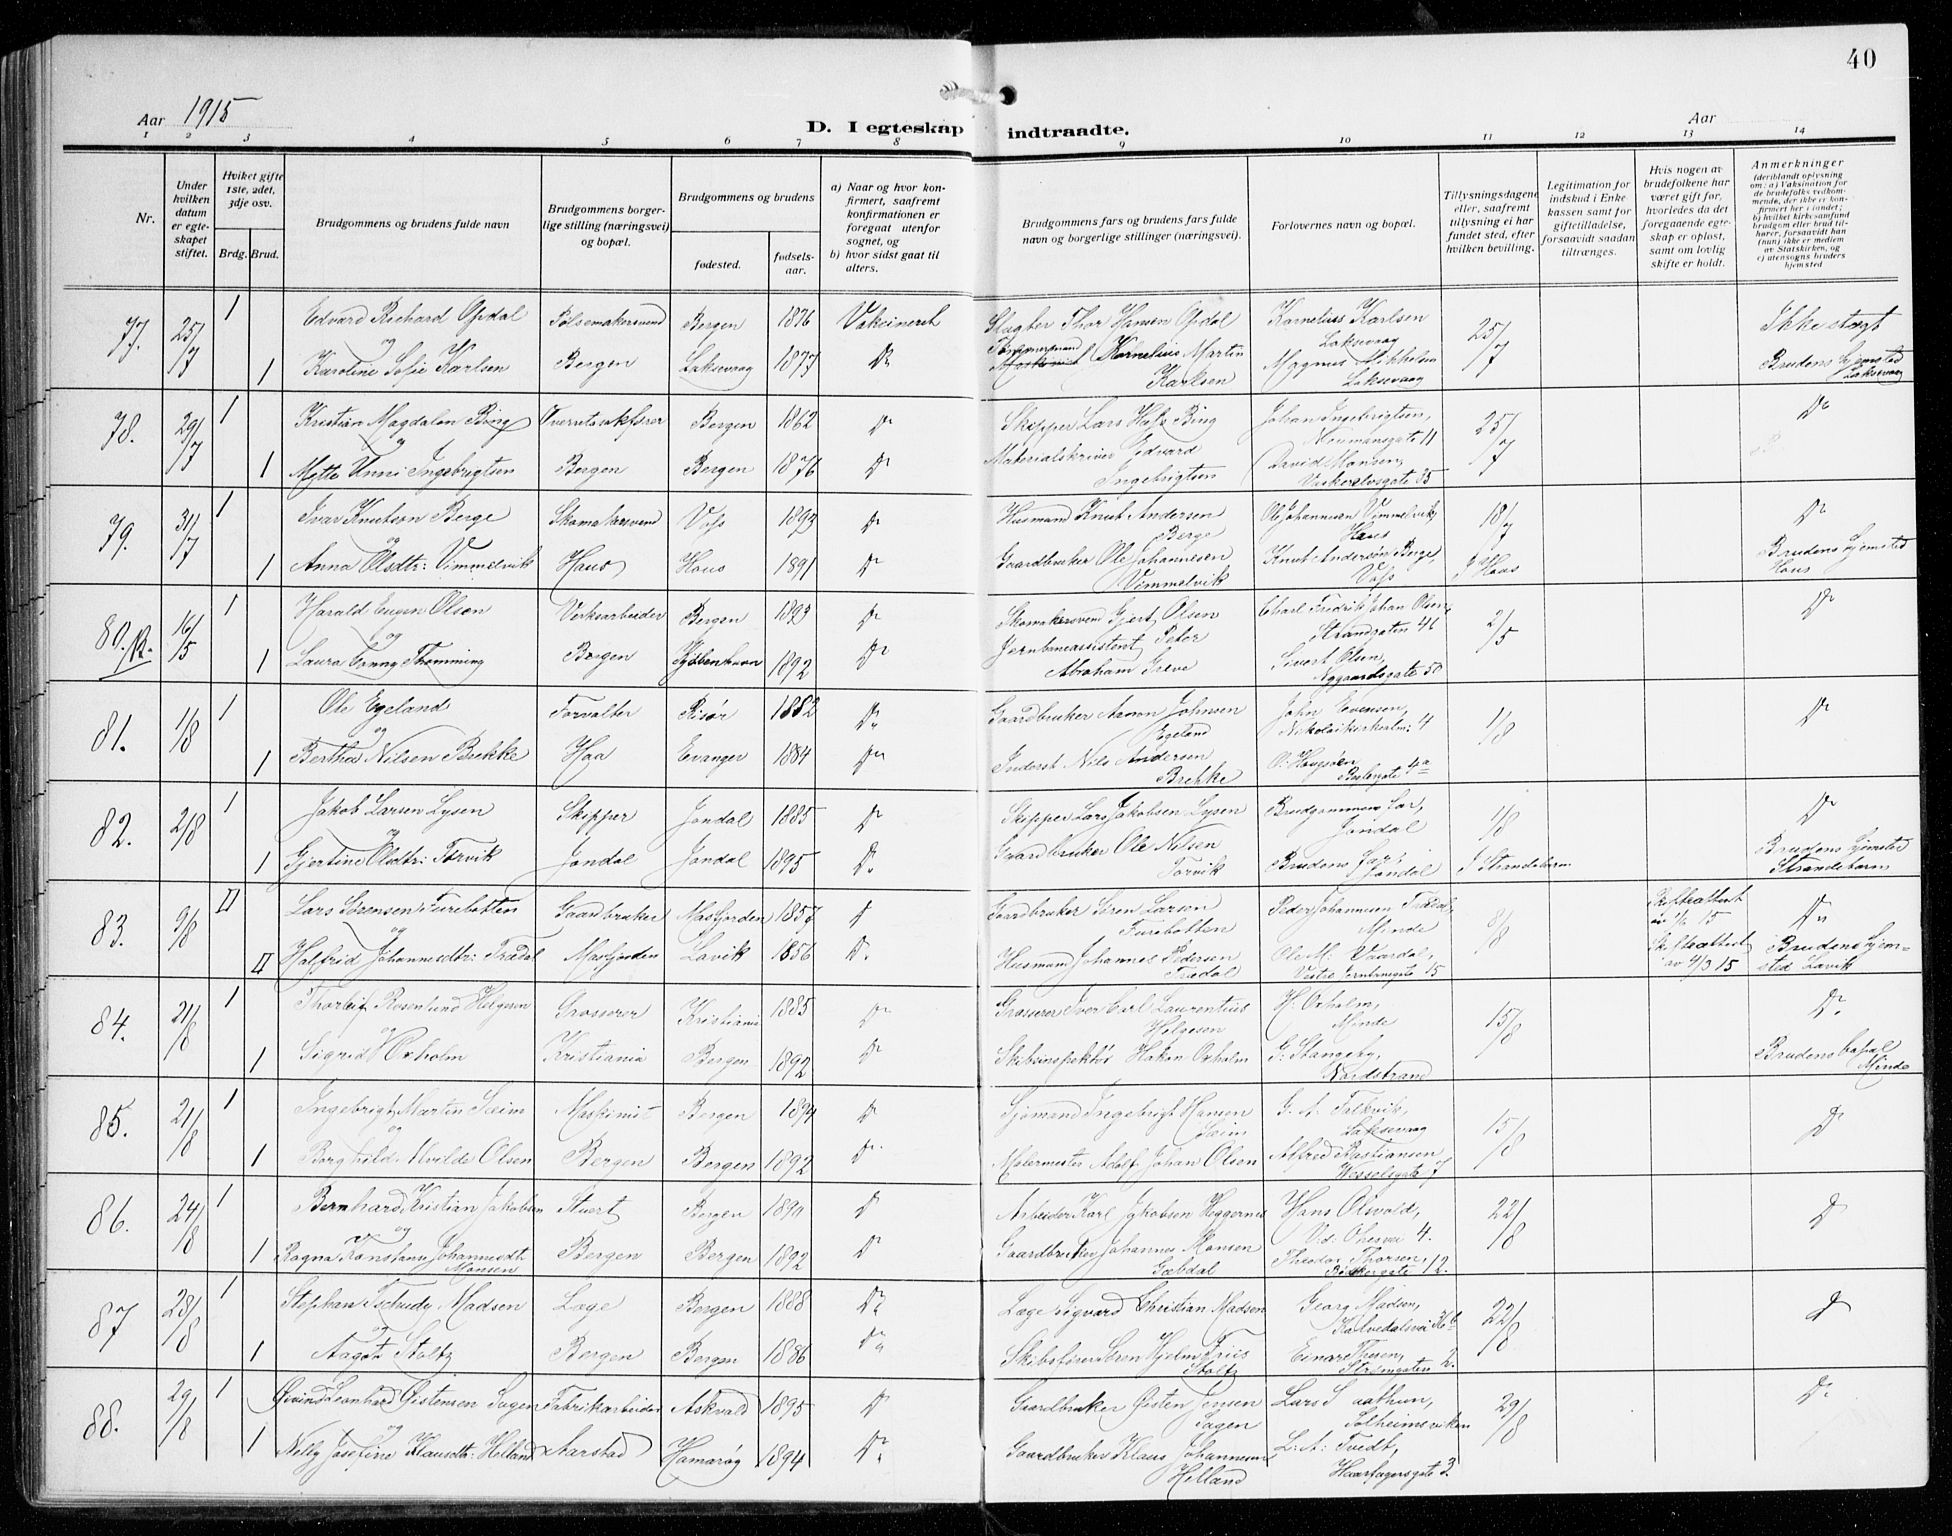 40
Aar 1915
D. I egteskap indtraadte.
Aar
1 2 3 4 5 6 7 8 9 10 11 12 13 14
Nr.
Under hvilken datum er egteskapet stiftet.
Hviket gifte 1ste, 2det, 3dje osv.
Brdg. Brud.
Brudgommens og brudens fulde navn
Brudgommens borgerlige stilling (næringsvei) og bopæl.
Brudgommens og brudens
fødested.
fødselsaar.
a) Naar og hvor konfirmert, saafremt konfirmationen er foregaat utenfor sognet, og
b) hvor sidst gaat til alters.
Brudgommens fars og brudens fars fulde navn og borgerlige stillinger (næringsvei).
Forlovernes navn og bopæl.
Tillysningsdagene eller, saafremt tillysning ei har fundet sted, efter hvilken bevilling.
Legitimation for indskud i Enkekassen samt for giftetilladelse, forsaavidt saadan tiltrænges.
Hvis nogen av brudefolkene har været gift før, hvorledes da det foregaaende egteskap er opløst, samt om lovlig skifte er holdt.
Anmerkninger (deriblandt oplysning om: a) Vaksination for de brudefolks vedkommende, der ikke er konfirmert her i landet; b) hvilket kirkesamfund brudgom eller brud tilhører, forsaavidt han (hun) ikke er medlem av Statskirken, og c) utensogns bruders hjemsted
77. 25/7 1 Edvard Richard Opdal Pølsemakersvend Bergen 1876 Vakcineret Slagter Thor Hansen Opdal Kornelius Karlsen Laksevaag 25/7 Ikke slegt
og
1 Karoline Sofie Karlsen Bergen Laksevaag 1877 Do Tømmermand Kornelius Martin Karlsen Magnus Mikkelsen Laksevaag Brudens hjemsted Laksevaag
78. 29/7 1 Kristian Magdalon Bing Overretssakfører Bergen 1862 Do Skipper Lars Hass Bing Johan Ingebrigtsen, Neumansgate 11 25/7 Do
og
1 Mytte Unni Ingebrigtsen Bergen Bergen 1876 Do Materialskriver Edvard Ingebrigtsen David Monsen, Veskerelvsgate 35
79. 31/7 1 Ivar Knutson Berge Skomakersvend Voss 1892 Do Husmand Knut Andersen Berge Ole Johannesen Vimmelvik, Haus 18/7 Do
og
1 Anna Olsdtr: Vimmelvik Haus Haus 1891 Do Gaardbruker Ole Johannesen Vimmelvik Knut Andersøn Berge, Voss I Haus Brudens hjemsted Haus
80. R. 16/5 1 Harald Eugen Olsen Verksarbeider Bergen 1893 Do Skomakersvend Gjert Olsen Charl Fredrik Johan Olsen, Strandgaten 46 2/5 Do
og
1 Laura Fanny Thomming Bergen Kjøbenhavn 1892 Do Jernbaneassistent Peter Abraham Greve Sivert Olsen, Aggaardsgate 50
81. 1/8 1 Ole Egeland Forvalter Risør 1882 Do Gaardbruker Aanon Johnsen Egeland John Evensen, Nikolaikirkealm: 4 1/8 Do
og
1 Bertha Nilsen Brekke Haa Evanger 1884 Do Inderst Nils Andersen Brekke O. Haugsøen, 4a
82. 2/8 1 Jakob Larsen Lysen Skipper Jondal 1885 Do Skipper Lars Jakobsen Lysen Brudgommens far, Jondal 1/8 Do
og
1 Gjertine Olsdtr: Torvik Jondal Jondal 1895 Do Gaardbruker Ole Nilsen Torvik Brudens far, Jondal I Strandebarm Brudens hjemsted Strandebarm
83. 9/8 II Lars Sørensen Furebotten Gaardbruker Masfjorden 1857 Do Gaardbruker Søren Larsen Furebotten Peder Johannesen Trædal, Minde 8/8 Skifteattest av 7/6 15 Do
og
II Halfrid Johannesdtr: Trædal Masfjorden Lavik 1856 Do Husmand Johannes Pedersen Trædal Ole M. Vaardal, Vestre Jernbanegate 15 Skifteattest av 9/3 15 Brudens hjemsted Lavik
84. 21/8 1 Thorleif Rosenlund Helgesen Grosserer Kristiania 1885 Do Grosserer Iver Carl Laurentius Helgesen H. Oxholm, Minde 15/8 Do
og
1 Sigrid Oxholm Kristiania Bergen 1892 Do Skibsinspektør Hakon Oxholm G. Stangeby, Nordstrand Brudens bopæl Minde
85. 21/8 1 Ingebrigt Martin Sæim Maskinist Bergen 1894 Do Sjømand Ingebrigt Hansen Sæim G. A. Falkvik, Laksevaag 15/8 Do
og
1 Borghild Alvilde Olsen Bergen Bergen 1892 Do Malermester Adolf Johan Olsen Alfred Bastiansen Wesselsgate 7
86. 24/8 1 Bernhard Kristian Jakobsen Stuert Bergen 1890 Do Arbeider Karl Jakobsen Heggernes Hans Osvold, 4. 22/8 Do
og
1 Ragna Konstanse Johannesdt. Monsen Bergen Bergen 1892 Do Gaardbruker Johannes Monsen Theodor Thorsen, Bødkergate 12.
87 28/8 1 Stephan Tschudy Madsen Læge Bergen 1888 Do Læge Sigvard Christian Madsen Georg Madsen, Kalvedalsvei 36b 22/8 Do
og
1 Aagot Stoltz Bergen Bergen 1886 Do Skibsfører Søren Hjelm Friis Stoltz Einar Thesen, Strømgaten 2.
88. 29/8 1 Øivind Leonhard Øistensen Sagen Fabrikarbeider Askvold 1895 Do Gaardbruker Øisten Jensen Sagen Lars S aathun, Solheimsviken 29/8 Do
og
1 Nelly Josefine Klausdtr: Helland Aarstad Hamarøy 1894 Do Gaardbruker Klaus Johannesen Helland L. A. Tvedt, Haarfagersgate 3.